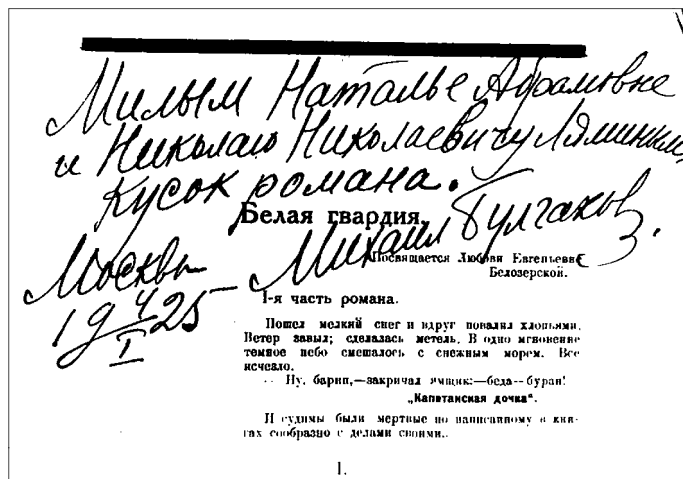 Милым Наталье Абрамовне
и Николаю Николаевичу Ляминым,
кусок романа.
Белая гвардия.
Михаил Булгаков
Москва
19 4/I 25
Посвящается Любови Евгеньевне
Белозерской.
1-я часть романа.
Пошел мелкий снег и вдруг повалил хлопьями.
Ветер завыл; сделалась метель. В одно мгновение
темное небо смешалось с снежным морем. Все
исчезло.
— Ну, барин,—закричал ямщик:—беда—буран!
„Капитанская дочка“.
И судимы были мертвые по написанному в кни-
гах сообразно с делами своими..
1.